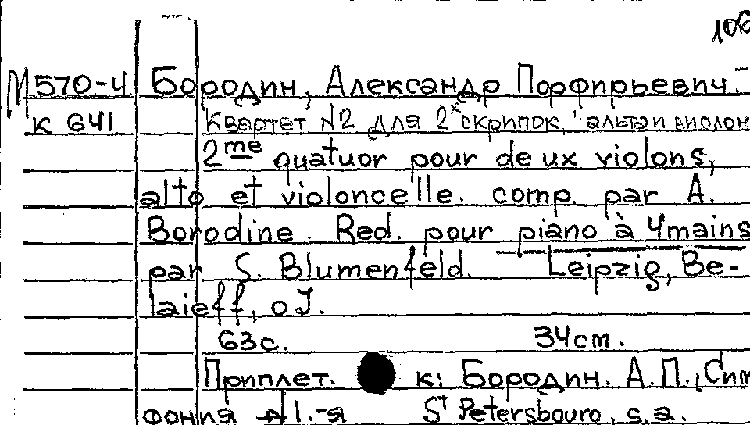 106
М570-4 Бородин, Александр Порфирьевич.
К 641 Квартет №2 для 2х скрипок, альта и виолон
2me quatuor pour deux violons,
alto et violoncelle. comp. par A.
Borodine. Red. pour piano à 4 mains
par S. Blumenfeld. Leipzig, Be-
laieff, o.J.
63с. 34cm.
Приплет. к: Бородин. А.П., Сим
фония 1.-я St Petersbouro, s.a.